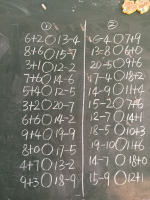 ① ②
6+2○13-4 16-4○7+9
8+6○15-7 13-8○6+0
3+1○12-2 20-5○9+6
7+6○14-6 17-4○18+2
5+4○12-5 14-9○11+4
3+2○20-7 15-2○7+6
6+6○14-2 12-7○14+1
9+4○19-9 18-5○10+3
8+9○15-5 19-10○11+6
4+7○13-2 14-7○18+0
9+3○18-9 15-9○12+1